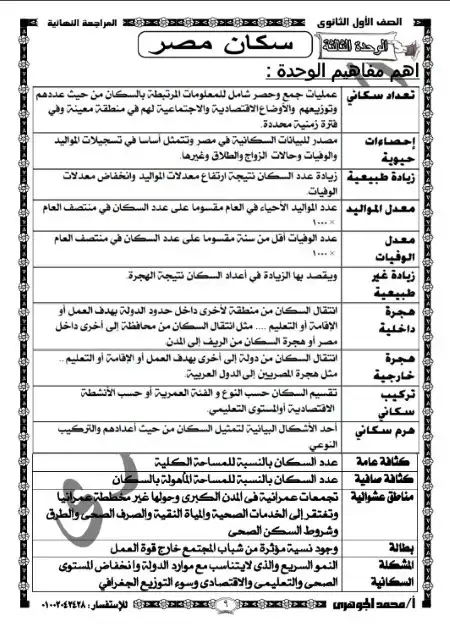 الصف الأول الثانوى
المراجعة النهائية
الوحدة الثالثة
سكان مصر
اهم مفاهيم الوحدة :
تعداد سكاني
عمليات جمع وحصر شامل للمعلومات المرتبطة بالسكان من حيث عددهم
وتوزيعهم والأوضاع الاقتصادية والاجتماعية لهم في منطقة معينة وفي
فترة زمنية محددة.
إحصاءات
حيوية
مصدر للبيانات السكانية في مصر وتتمثل أساسا في تسجيلات المواليد
والوفيات وحالات الزواج والطلاق وغيرها.
زيادة طبيعية
زيادة عدد السكان نتيجة ارتفاع معدلات المواليد وانخفاض معدلات
الوفيات.
معدل المواليد
عدد المواليد الأحياء في العام مقسوما على عدد السكان في منتصف العام
× ١٠٠٠
معدل
الوفيات
عدد الوفيات أقل من سنة مقسوما على عدد السكان في منتصف العام
× ١٠٠٠
زيادة غير
طبيعية
ويقصد بها الزيادة في أعداد السكان نتيجة الهجرة.
هجرة
داخلية
انتقال السكان من منطقة لأخرى داخل حدود الدولة بهدف العمل أو
الإقامة أو التعليم .... مثل انتقال السكان من محافظة إلى أخرى داخل
مصر أو هجرة السكان من الريف إلى المدن.
هجرة
خارجية
انتقال السكان من دولة إلى أخرى بهدف العمل أو الإقامة أو التعليم ..
مثل هجرة المصريين إلى الدول العربية.
تركيب
سكاني
تقسيم السكان حسب النوع و الفئة العمرية أو حسب الأنشطة
الاقتصادية أوالمستوى التعليمي.
هرم سكاني
أحد الأشكال البيانية لتمثيل السكان من حيث أعدادهم والتركيب
النوعي.
كثافة عامة
عدد السكان بالنسبة للمساحة الكلية
كثافة صافية
عدد السكان بالنسبة للمساحة المأهولة بالسكان
مناطق عشوائية
تجمعات عمرانية في المدن الكبرى وحولها غير مخططة عمرانيا
وتفتقر إلى الخدمات الصحية والمياة النقية والصرف الصحى والطرق
وشروط السكن الصحى
بطالة
وجود نسبة مؤثرة من شباب المجتمع خارج قوة العمل
المشكلة
السكانية
النمو السريع والذى لايتناسب مع موارد الدولة وانخفاض المستوى
الصحى والتعليمى والاقتصادى وسوء التوزيع الجغرافي
أ/محمد الجوهرى
٦
للإستفسار : ٠١٠٠٢٠٤٢٤٢٨